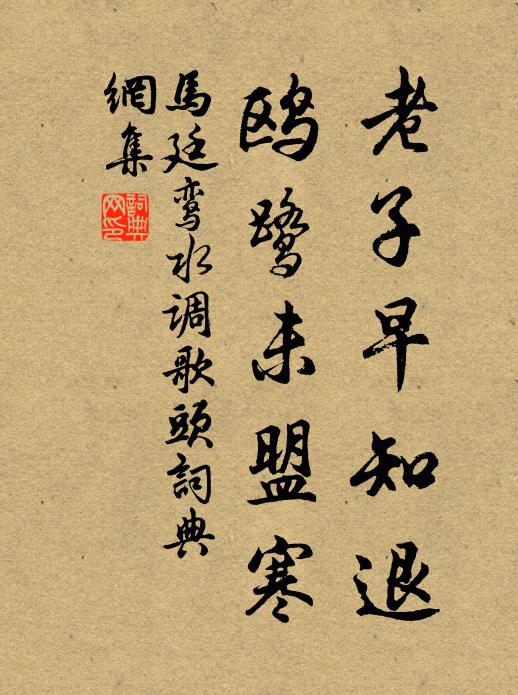 老子早知退
鸥鹭未盟寒
馬廷鸾水调歌頭詞典
網集
詞典网印